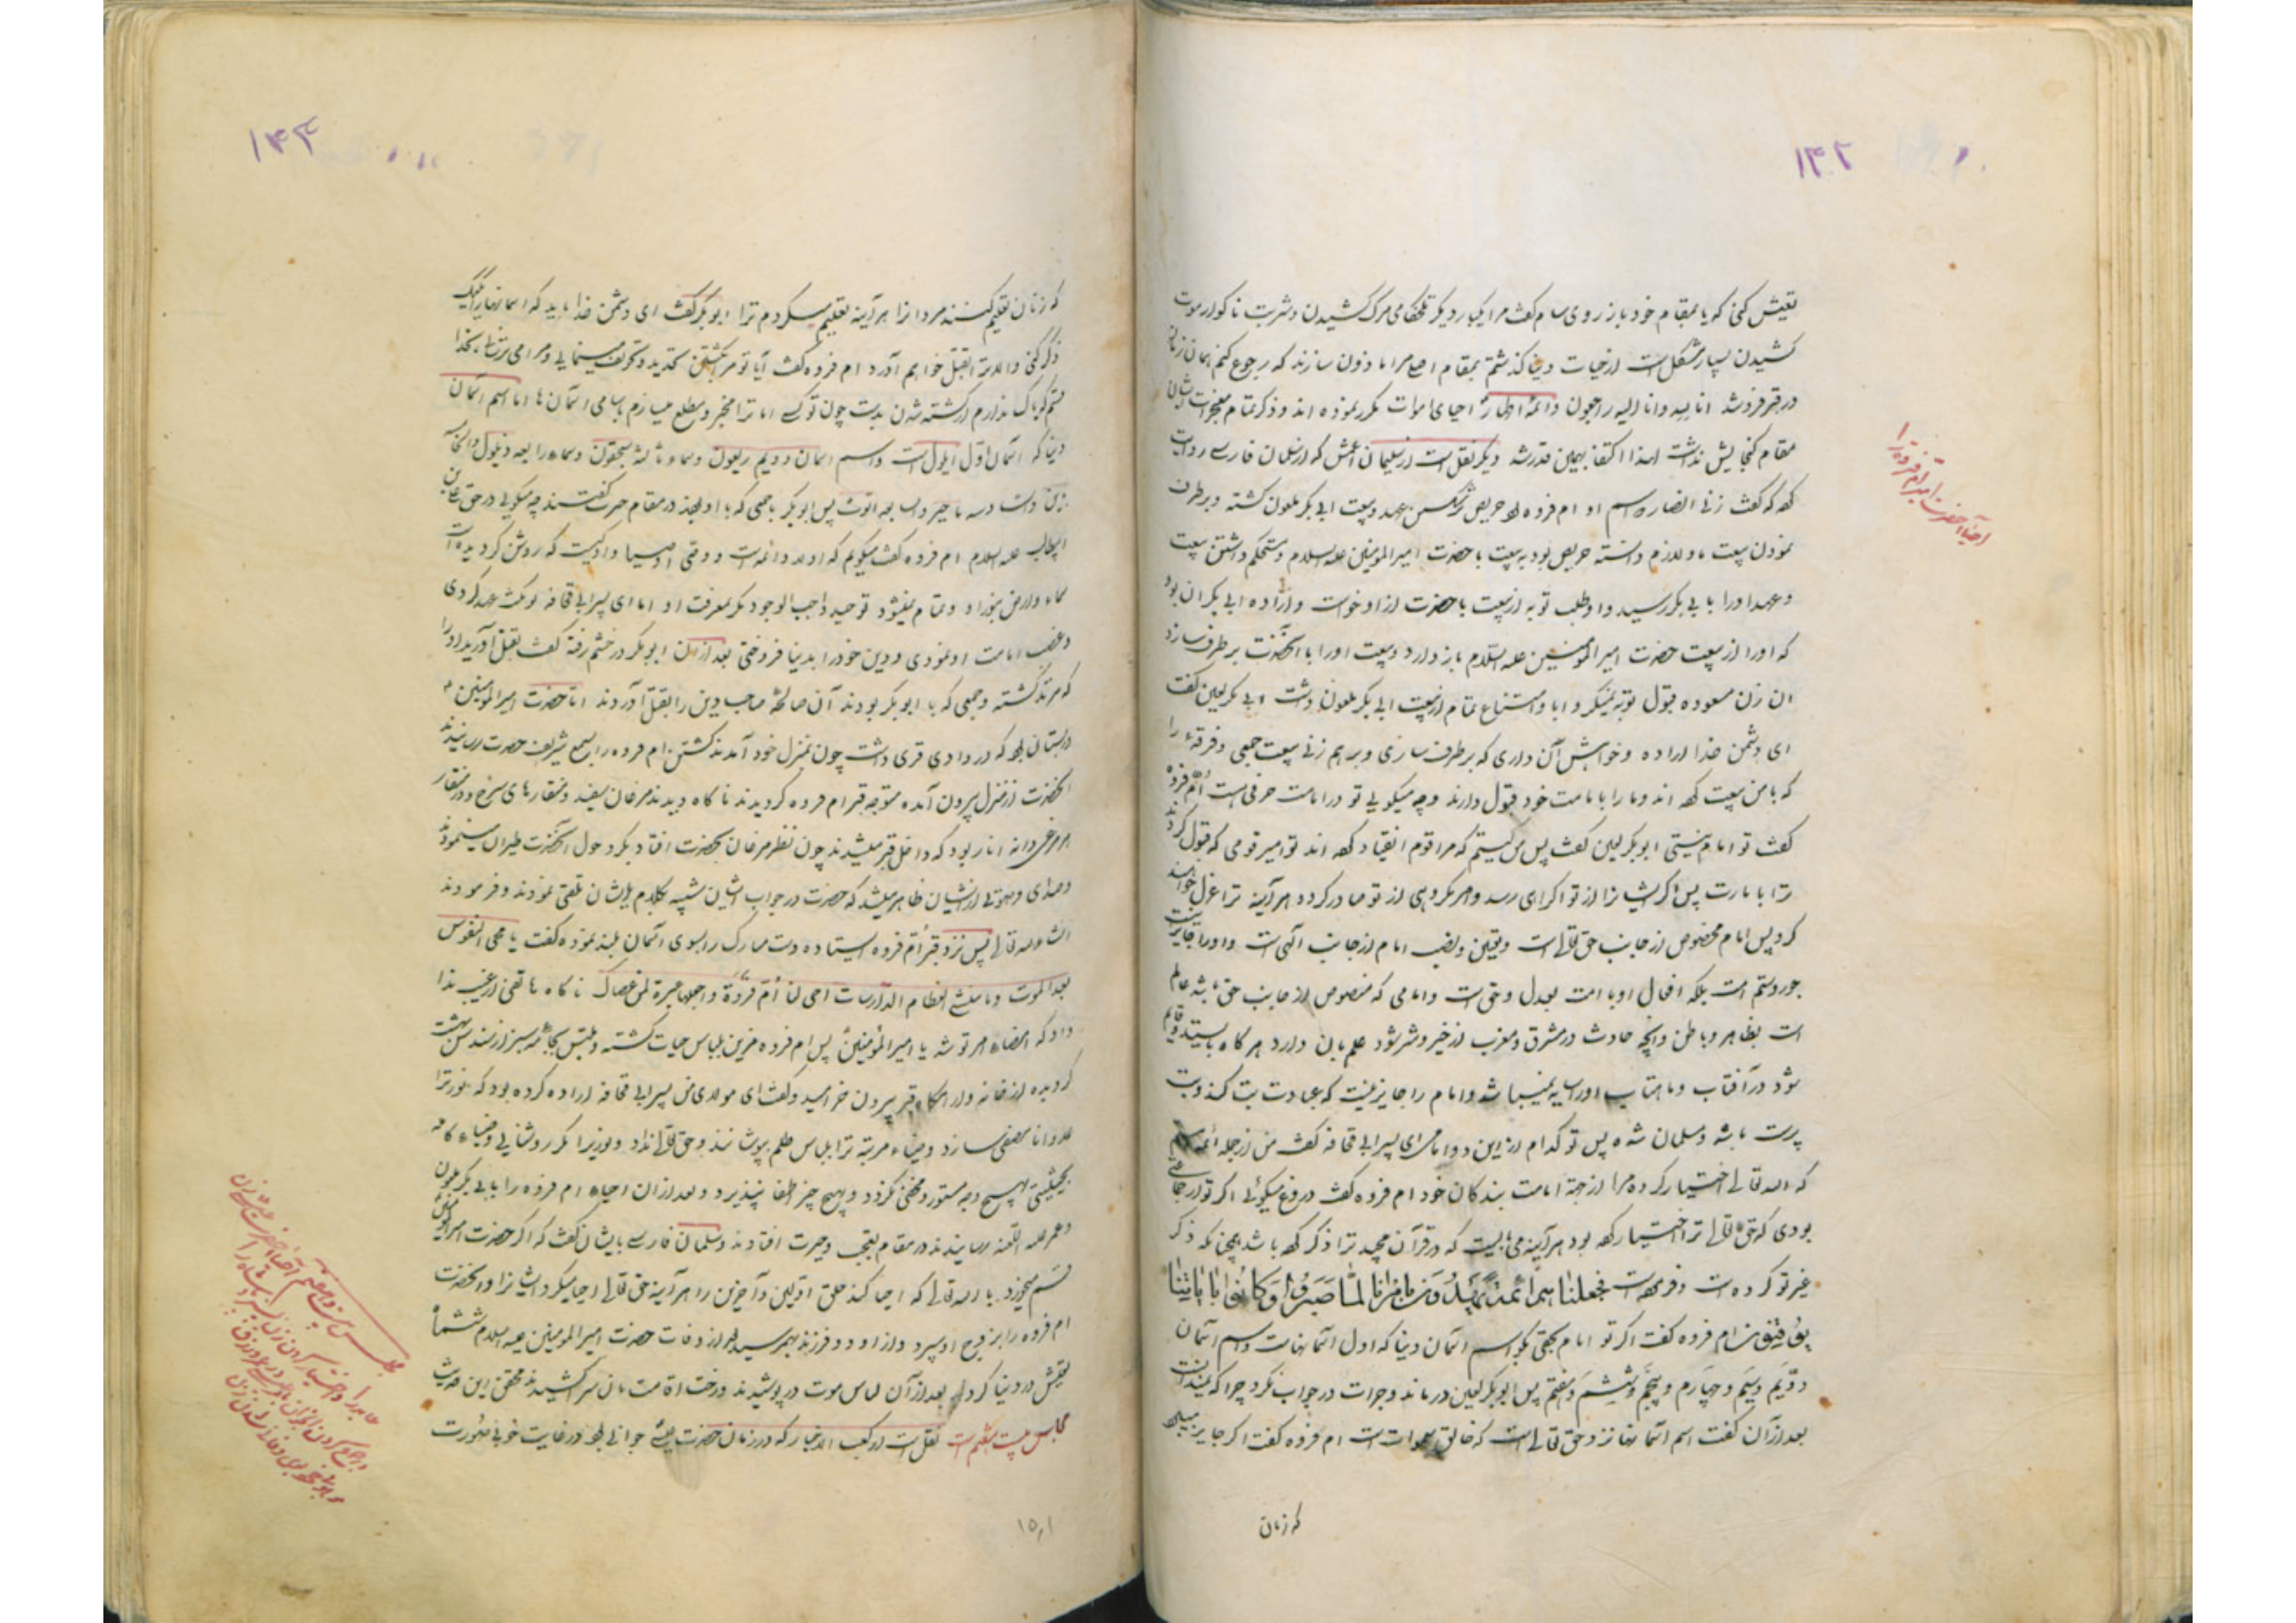 ۱۴۲
تعیش کنی که یا بمقام خود باز روی سام گفت مرا یکبار دیگر تلخکامی مرگ کشیدن و شربت ناگوار موت
کشیدن بسیار مشکل است از حیات دنیا گذشتم بمقام اصلی مرا ماذون سازند که رجوع کنم همان زمان
در قبر فرو شد انا لله وانا الیه راجعون و ائمهٔ اطهار احیای اموات مکرر نموده اند و ذکر تمام معجزات ایشان
مقام گنجایش نداشت لهذا اکتفا بهمین قدر شد دیگر نقل است از سلیمان اعمش که از سلمان فارسی روایت
کهه که گفت زنی انصاریه اسم او ام فروه بود حریص بر شکستن عهد و بیعت ابی بکر ملعون گشته و برطرف
نمودن بیعت او را لازم دانسته حریص بود به بیعت با حضرت امیر المومنین علیه السلام و مستحکم داشتن بیعت
و عهد او را با بی بکر رسید و او طلب توبه از بیعت با حضرت از او خواست و اراده ابی بکر آن بود
که او را از بیعت حضرت امیر المومنین علیه السلام باز دارد و بیعت او را با آنحضرت برطرف سازد
ان زن مسعوده قبول توبه نمیکرد و ابا و امتناع تمام از بیعت ابی بکر ملعون داشت ابی بکر لعین گفت
ای دشمن خدا اراده و خواهش آن داری که برطرف سازی و برهم زنی بیعت جمعی و فرقهٔ را
که با من بیعت کهه اند و ما را بامامت خود قبول دارند و چه میگویی تو در امامت من حرفی است اُم فروه
گفت تو امام نیستی ابو بکر لعین گفت پس من کیستم که مرا قوم انقیاد کهه اند تو امیر قومی که قبول کردند
ترا بامارت پس اگر ایشانرا از تو اکراهی رسد و امر مکروهی از تو صادر کرده هر آینه ترا عزل خواهند
کرد پس امام مخصوص از جانب حق تعالی است و تعیین و نصب امام از جانب الهی است و او را جایز نیست
جور و ستم امت بلکه افعال او با امت بعدل و حق است و امامی که منصوص از جانب حق باشد عالم
است بظاهر و باطن و آنچه حادث در مشرق و مغرب از خیر و شر شود علم بان دارد هرگاه بایستد و قایم
شود در آفتاب و ماهتاب او را سایه نمیباشد و امام را جایز نیست که عبادت بت کند و بت
پرست باشد و مسلمان شده پس تو کدام از این دو امامی ای پسر ابی قحافه گفت من از جمله ائمه ام
که الله تعالی اختیار کرده مرا از جهة امامت بندگان خود ام فروه گفت دروغ میگوئی اگر تو از جماعتی
بودی که حق تعالی ترا اختیار کهه بود هر آینه می بایست که در قرآن مجید ترا ذکر کهه باشد همچنانکه ذکر
غیر تو کرده است و فرموده است فجعلنا هم ائمة یهدون بامرنا لما صبروا و کانوا بایاتنا
یوقنون ام فروه گفت اگر تو امام بحقی بگو اسم آسمان دنیا که اول آسمانهاست و اسم آسمان
دوّیم و سیّم و چهارم و پنجم و ششم و هفتم پس ابو بکر لعین در ماند و جرات در جواب نکرد چرا که نمیدانست
بعد از آن گفت اسم آسمانها نزد حق تعالی است که خالق سموات است ام فروه گفت اگر جایز میبود
که زنان
احیا حضرت امیر ام فروه را
۱۴۳
که زنان تعلیم کنند مردانرا هر آینه تعلیم میکردم ترا ابو بکر گفت ای دشمن خدا باید که اسمانها را یک یک
ذکر کنی والا ترا بقتل خواهم آورد ام فروه گفت آیا تو مرا بکشتن تهدید و تخویف مینمایی و مرا می ترسانی بخدا
قسم که باک ندارم از کشته شدن بدست چون تو کسی اما ترا مخبر و مطلع میسازم باسامی آسمان ها اما اسم آسمان
دنیا که آسمان اوّل ایلول است و اسم آسمان دویم ربعون و سماء ثالثه سحقون و سماء رابعه ذیلول
ابو بکر با جمعی که با او بودند در مقام حیرت گفتند چه میگویی در حق علی بن
ابیطالب علیه السلام ام فروه گفت میگویم که او امام ائمه است و وصی اوصیا و او کیست که روشن گردیده است
سماء و ارض بنور او و تمام نمیشود توحید واجب الوجود مگر بمعرفت او اما ای پسر ابی قحافه تو نکث عهد کردی
و غصب امامت او نمودی و دین خود را بدنیا فروختی بعد از آن ابو بکر در خشم رفته گفت بقتل آورید او را
که مرتد گشته و جمعی که با ابو بکر بودند آن صالحهٔ صاحب دین را بقتل آوردند اما حضرت امیر المومنین ع
در بستان بود که در وادی قری داشت چون بمنزل خود آمدند کشتن ام فروه را بسمع شریف حضرت رسانیدند
آنحضرت از منزل بیرون آمده متوجه قبر ام فروه گردیدند ناگاه دیدند مرغان سفید و منقارهای سرخ و در منقار
هر مرغی دانه انار بود که داخل قبر میشدند چون نظر مرغان بحضرت افتاد بگرد حول آنحضرت طیران مینمودند
و صدای و صوتی از ایشان ظاهر میشد که حضرت در جواب ایشان شبیه بکلام ایشان تلفّی نمودند و فرمودند
انشاءالله تعالی پس نزد قبر اُم فروه ایستاده دست مبارک را بسوی آسمان بلند نموده گفت یا محی النفوس
بعد الموت و یا منشئ العظام الدّارسات احی لنا اُم فروة و اجعلها عبرة لمن عصاک ناگاه هاتفی از غیب ندا
داد که امضاء امر تو شد یا امیر المؤمنین پس ام فروه مزین بلباس حیات گشته و ملتبس بجامهٔ سبز از سندس بهشت
گردیده از خانه و آرامگاه قبر بیرون خرامید و گفت ای مولای من پسر ابی قحافه اراده کرده بود که نور ترا
منطفی سازد و ضیاء مرتبه ترا بلباس ظلم بپوشانند و حق تعالی نداد و نور ترا مگر روشنایی و ضیاء کامه
بحیثیتی بهیچ وجه مستور و مخفی نگردد و بهیچ چیز اطفا نپذیرد و بعد از آن احیاء ام فروه را بابی بکر ملعون
و عمر علیه اللعنه رسانیدند در مقام تعجب و حیرت افتادند و سلمان فارسی بایشان گفت که اگر حضرت امیر المومنین
قسم میخورد با الله تعالی که احیا کند خلق اوّلین و آخرین را هر آینه حق تعالی احیا میکرد ایشانرا و آنحضرت
ام فروه را بزوج او سپرد و از او دو فرزند بهم رسید و بعد از وفات حضرت امیر المومنین علیه السلام ششماه
تعیش در دنیا کرد و بعد از آن لباس موت در پوشیدند و رخت اقامت بان سرا کشیدند
مجلس بیست و هشتم است نقل است از کعب الاخبار که در زمان حضرت عیسی جوانی بود در غایت خوبی صُورت
مجلس بیست و هشتم
۱۵۱